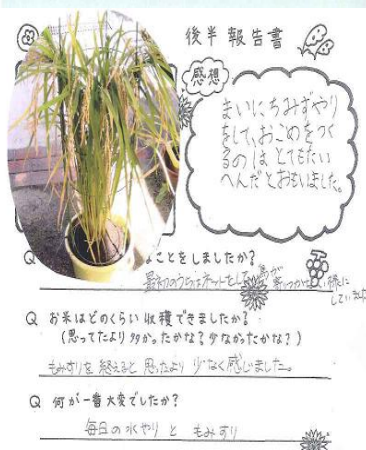 後半報告書
感想
まいにちみずやり
をして、おこめをつく
るのは、とてもたい
へんだとおもいました。
Q なことをしましたか?
最初のうちはネットをして、鳥が寄りつかない様に
していました
Q お米はどのくらい収穫できましたか?
(思ってたより多かったかな?少なかったかな?)
もみすりを終えると思ったより少なく感じました。
Q 何が一番大変でしたか?
毎日の水やりともみすり